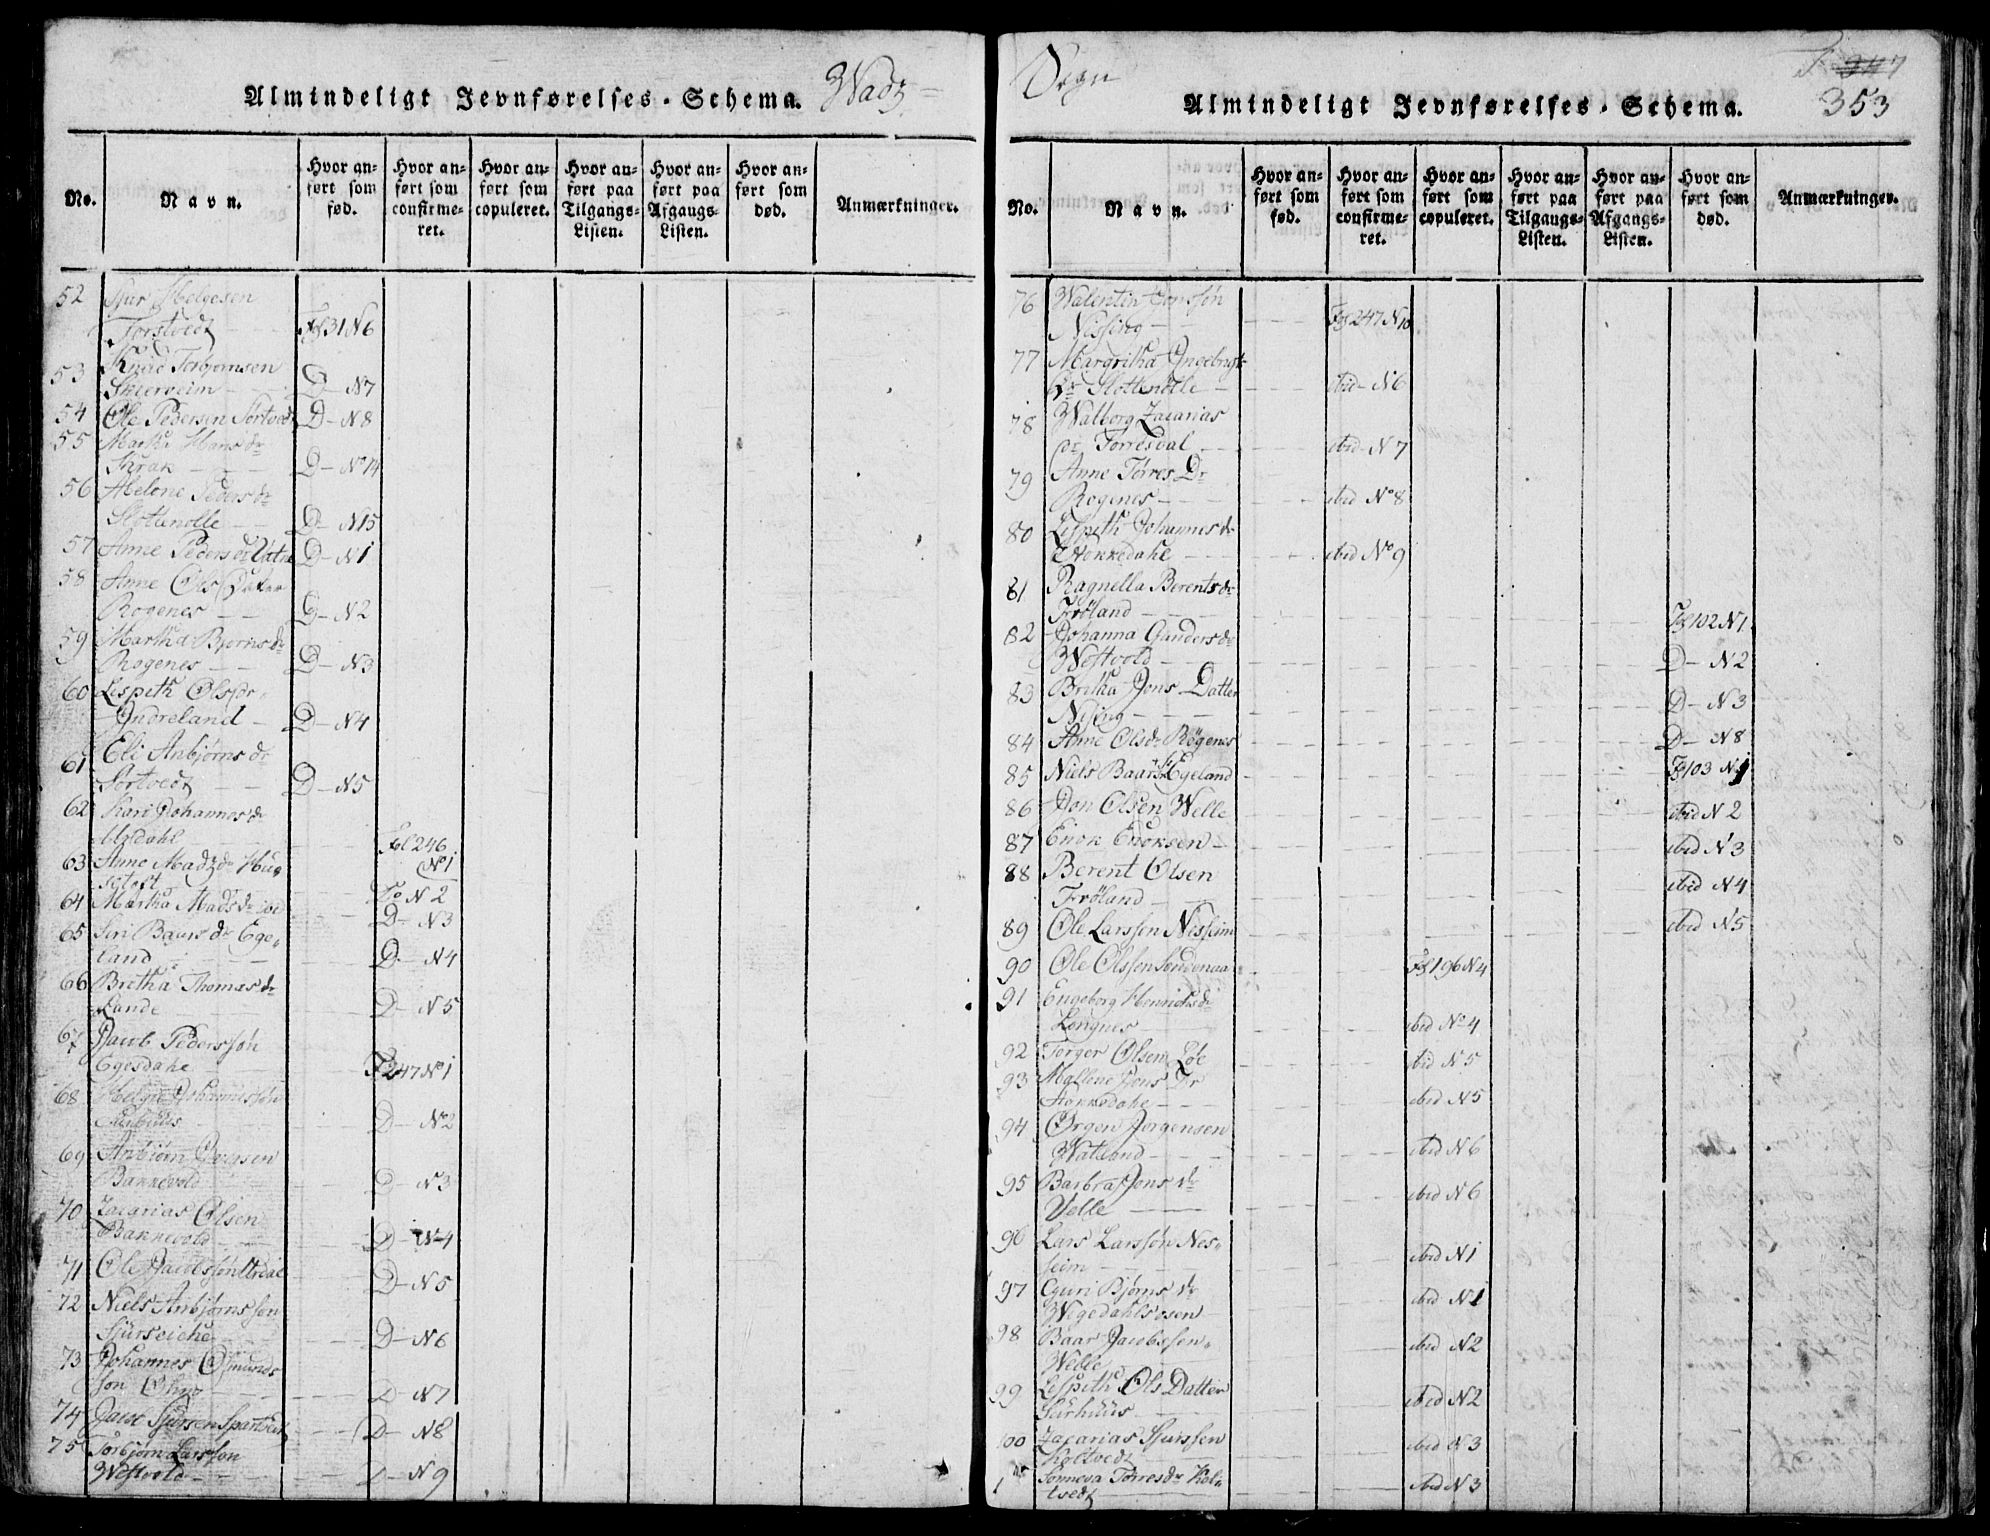 Almindeligt Jevnførelses-Schema. Wadz
No.
Navn.
Hvor anført som fød.
Hvor anført som confirmeret.
Hvor anført som copuleret.
Hvor anført paa Tilgangs-Listen.
Hvor anført paa Afgangs-Listen.
Hvor anført som død.
Anmærkninger.
52 Sjur Helgesen
Torstvedt Fol 31 N6
53 Knud Torbjornsen
Skierveim D- N7
54 Ole Pedersen Sortved D- N8
55 Martha Hans dr
Skrak D- No 14
56 Helene Peders dr
Slottenolle D- N15
57 Anne Peders dr D- N1
58 Anne Ols Datter
Rogenes D- N2
59 Martha Bjorns dr
Rogenes D- N3
60 Lispeth Ols dr
Indreland D- N4
61 Eli Anbjørns dr
Sortvedt D- N5
62 Kari Johannes dr
Fol 246
No 1
63 Anne Madz dr Hug
toft Fo N 2
64 Martha Mads dr D- N3
65 Siri Baars dr Ege„
land D- N4
66 Bretha Thomas dr
Lande D- N5
67 Jacob Pederssøn
Egesdahl F 247 No 1
68 Helge Johannessøn
D- No2
69 Anbjørn Iversen
Bannevold D- N3
70 Zacarias Olsen
Bannevold D- N4
71 Ole Jacobssøn D- N5
72 Niels Anbjørnsson
D- N6
73 Johannes Osmunds
søn D- N7
74 Jacob Sjursen D- N8
75 Torbjørn Larsson
Westvold D- N9
Sogn
Almindeligt Jevnførelses-Schema. 353
No.
Navn.
Hvor anført som fød.
Hvor anført som confirmeret.
Hvor anført som copuleret.
Hvor anført paa Tilgangs-Listen.
Hvor anført paa Afgangs-Listen.
Hvor anført som død.
Anmærkninger.
76 Walentin Jonssøn
Nissing Fol 247 N10
77 Margritha Ingebrigt
Dr Slottenolle ibid- N6
78 Walborg Zacarias
dr Torresdal ibid- N7
79 Anne Tørres Dr
Rogenes ibid No8
80 Lispeth Johannes dr
Stokkedahl ibid No9
81 Ragnella Berents dr
Frøland Fol 102 N1
82 Johanna Gunders dr
Westvold D- N2
83 Britha Jons Datter
Nising D- N3
84 Anne Ols dr Røgenes D- N8
85 Niels Baars Egeland Fol 103 N1
86 Jon Olsen Welle ibid N2
87 Enok Enoksen ibid N3
88 Berent Olsen
Frøland ibid N4
89 Ole Larssen Nisseim ibid N5
90 Ole Olssen Søndenaa Fol 196 N4
91 Engeborg Henrichs dr
Langnes ibid No4
92 Torger Olsen Løe ibid N5
93 Mallene Jons Dr
Stokkedahl ibid N5
94 Ørgen Jørgensen
Watland ibid N6
95 Barbra Jons dr
Velle ibid N6
96 Lars Larssøn Nes„
seim ibid N1
97 Guri Bjørns dr
Wegedahlsosen ibid N1
98 Baar Jacobssen
Welle ibid N2
99 Lispeth Ols Datter
Surhuus ibid N2
100 Zacarias Sjurssen
Koltvedt ibid N3
1 Sonneva Tørres dr Kol„
tvedt ibid N3